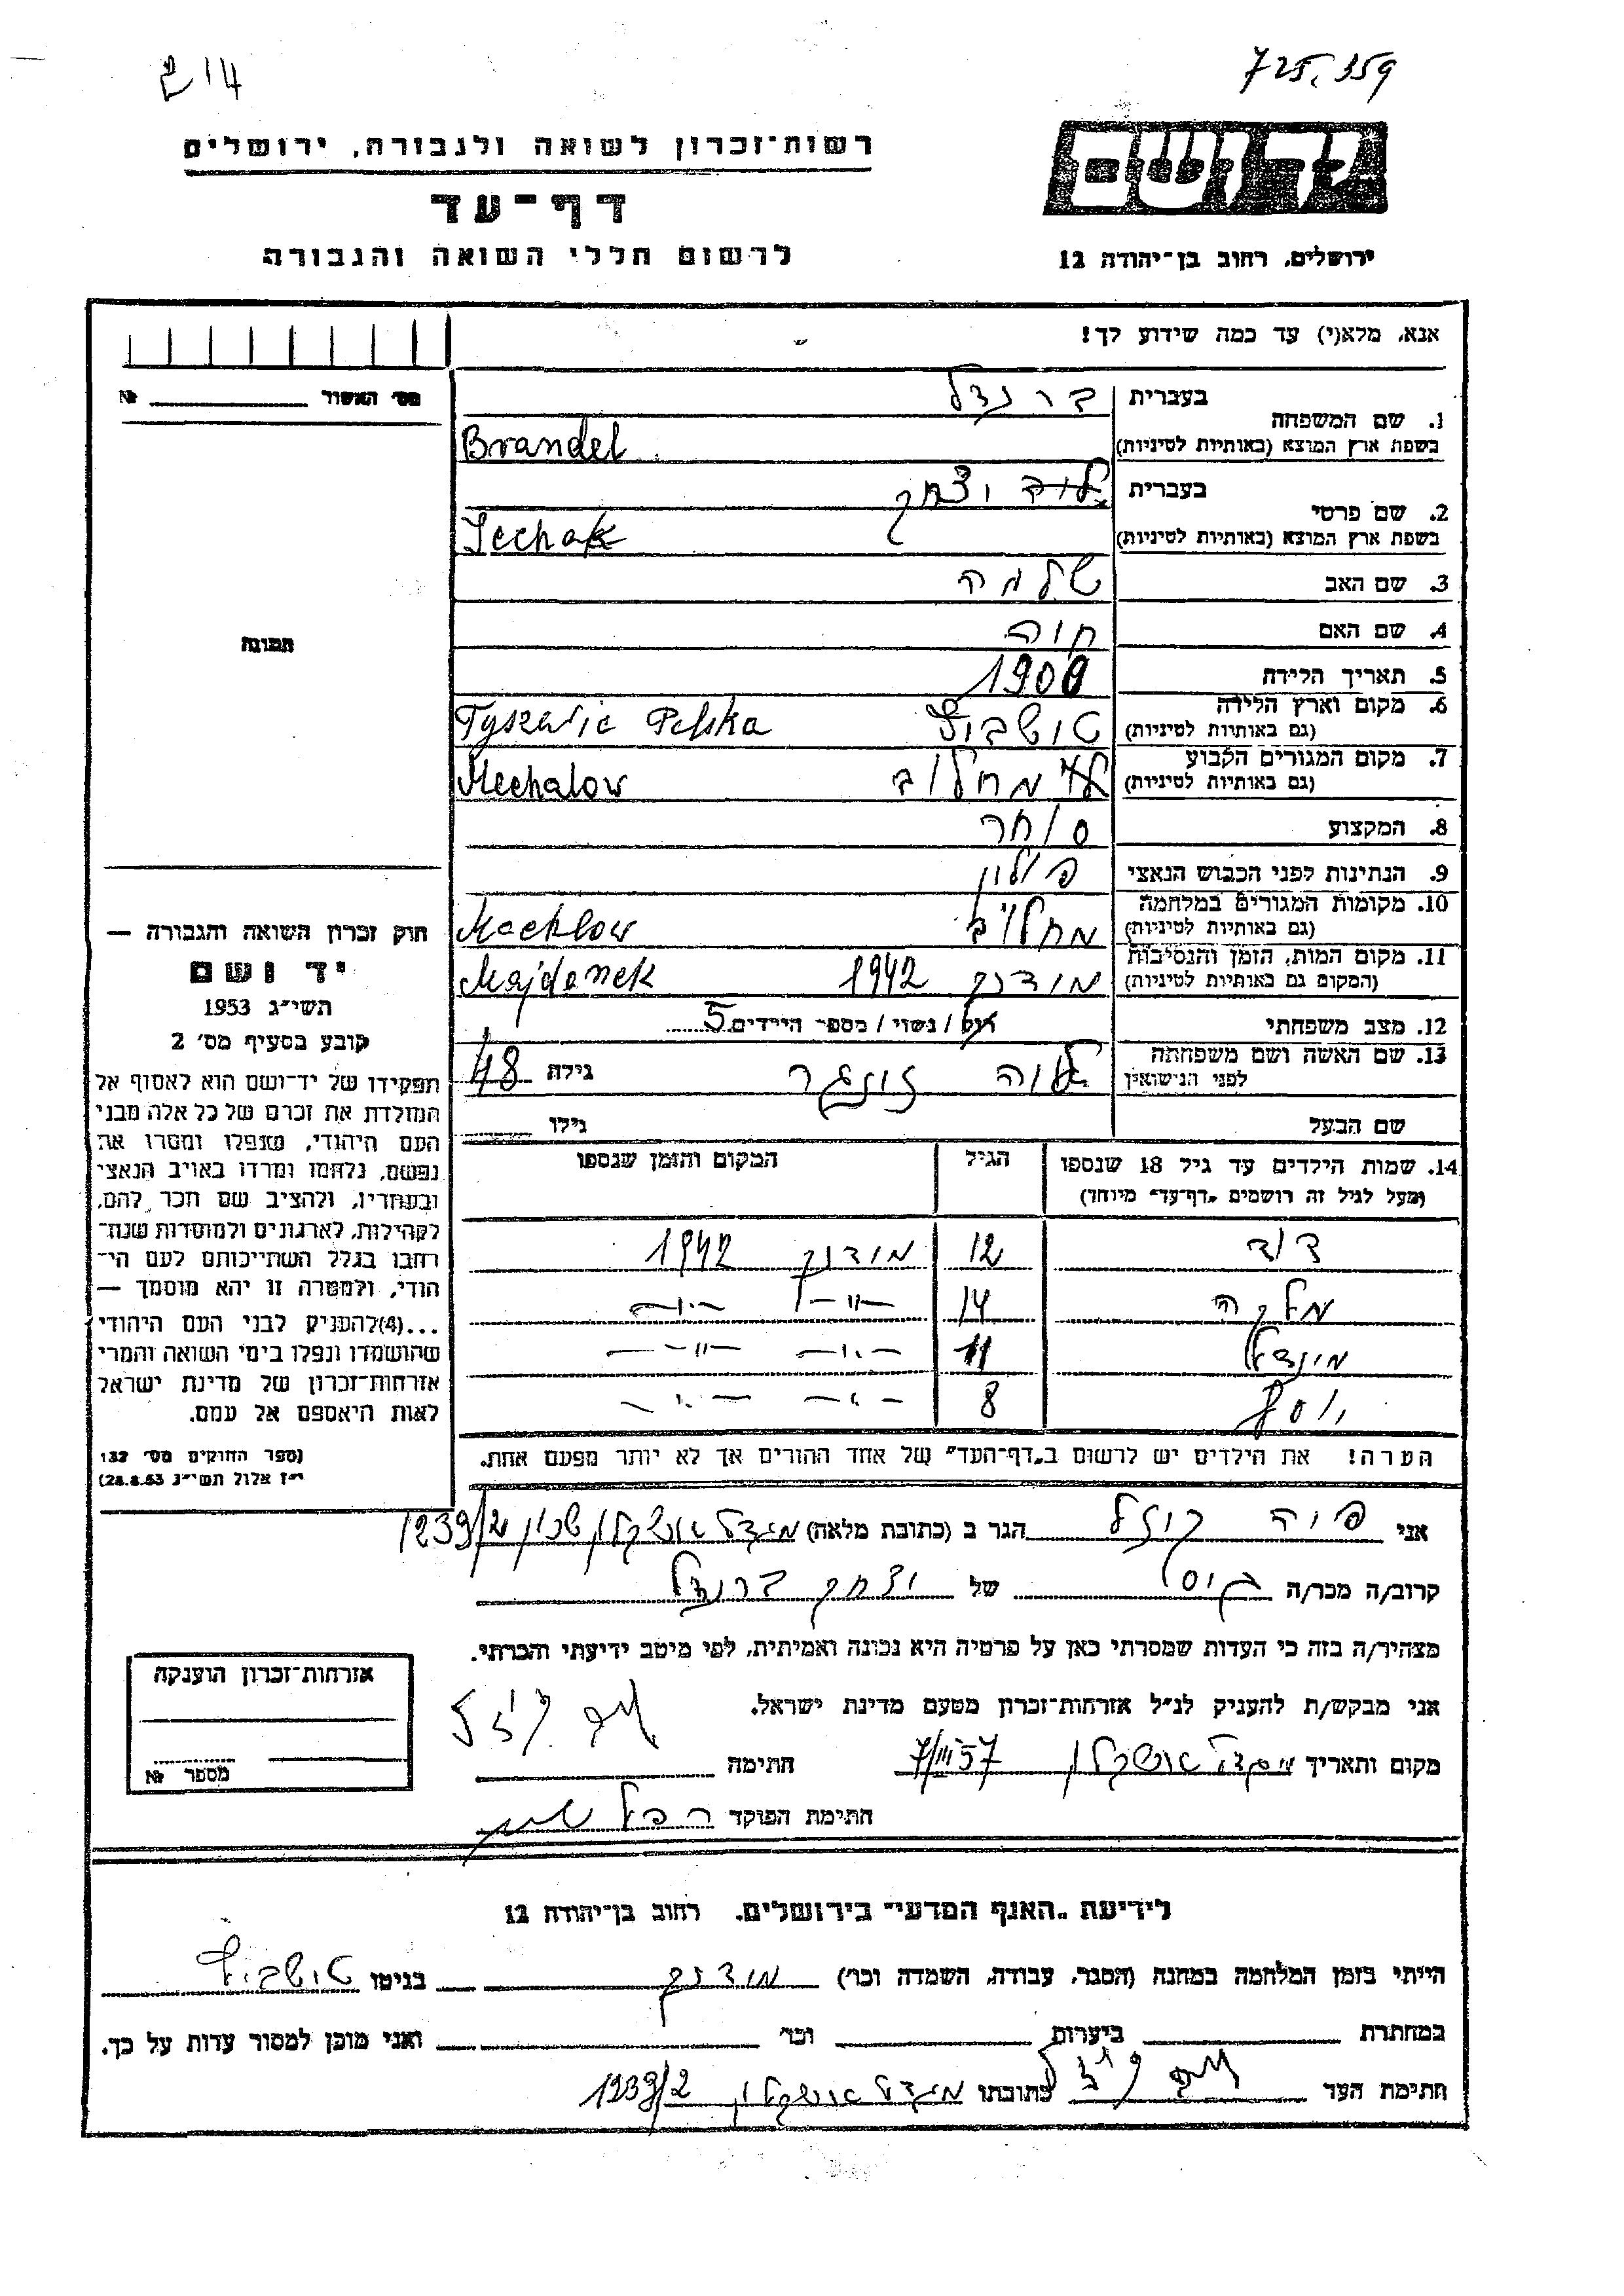 725.359
214
יד ושם
רשות־זכרון לשואה ולגבורה, ירושלים
דף־עד
לרשום חללי השואה והגבורה
ירושלים, רחוב בן־יהודה 12
אנא, מלא(י) עד כמה שידוע לך!
מס׳ האשור № 
1. שם המשפחה בעברית ברנדל
בשפת ארץ המוצא (באותיות לטיניות) Brandel
2. שם פרטי בעברית יצחק
בשפת ארץ המוצא (באותיות לטיניות) Icchak
3. שם האב שלמה
4. שם האם חוה
5. תאריך הלידה 1900
6. מקום וארץ הלידה (גם באותיות לטיניות) טושביץ Tyszewic Polska
7. מקום המגורים הקבוע (גם באותיות לטיניות) מחלוב Mechalow
8. המקצוע סוחר
9. הנתינות לפני הכבוש הנאצי פולין
10. מקומות המגורים במלחמה (גם באותיות לטיניות) מחלוב Mechlow
11. מקום המות, הזמן והנסיבות (המקום גם באותיות לטיניות) מידנק 1942 Majdanek
12. מצב משפחתי רוק/נשוי/מספר הילדים 5
13. שם האשה ושם משפחתה לפני הנישואין גילה 48
שם הבעל גילו
14. שמות הילדים עד גיל 18 שנספו (מעל לגיל זה רושמים „דף־עד״ מיוחד) הגיל המקום והזמן שנספו
דוד 12 מידנק 1942
מלכה 14 —״— —״—
מינדל 11 —״— —״—
יוסף 8 —״— —״—
הערה! את הילדים יש לרשום ב„דף־העד״ של אחד ההורים אך לא יותר מפעם אחת.
תמונה
חוק זכרון השואה והגבורה —
יד ושם
תשי״ג 1953
קובע בסעיף מס׳ 2
תפקידו של יד־ושם הוא לאסוף אל
המולדת את זכרם של כל אלה מבני
העם היהודי, שנפלו ומסרו את
נפשם, נלחמו ומרדו באויב הנאצי
ובעוזריו, ולהציב שם וזכר להם,
לקהילות, לארגונים ולמוסדות שנח־
רבו בגלל השתייכותם לעם הי־
הודי, ולמטרה זו יהא מוסמך —
...(4)להעניק לבני העם היהודי
שהושמדו ונפלו בימי השואה והמרי
אזרחות־זכרון של מדינת ישראל
לאות היאספם אל עמם.
(ספר החוקים מס׳ 132
י״ז אלול תשי״ג 28.8.53)
אני הגר ב (כתובת מלאה) מגדל אשקלון שכון 1239/2
קרוב/ה מכר/ה גיס של יצחק ברנדל
מצהיר/ה בזה כי העדות שמסרתי כאן על פרטיה היא נכונה ואמיתית, לפי מיטב ידיעתי והכרתי.
אני מבקש/ת להעניק לנ״ל אזרחות־זכרון מטעם מדינת ישראל.
מקום ותאריך מגדל אשקלון 7/III 57 חתימה
חתימת הפוקד
אזרחות־זכרון הוענקה
מספר №
לידיעת „האגף המדעי״ בירושלים, רחוב בן־יהודה 12
הייתי בזמן המלחמה במחנה (הסגר, עבודה, השמדה וכו׳) מידנק בגיטו טושביץ
במחתרת ביערות וכו׳ ואני מוכן למסור עדות על כך.
חתימת העד כתובתו מגדל אשקלון 1239/2